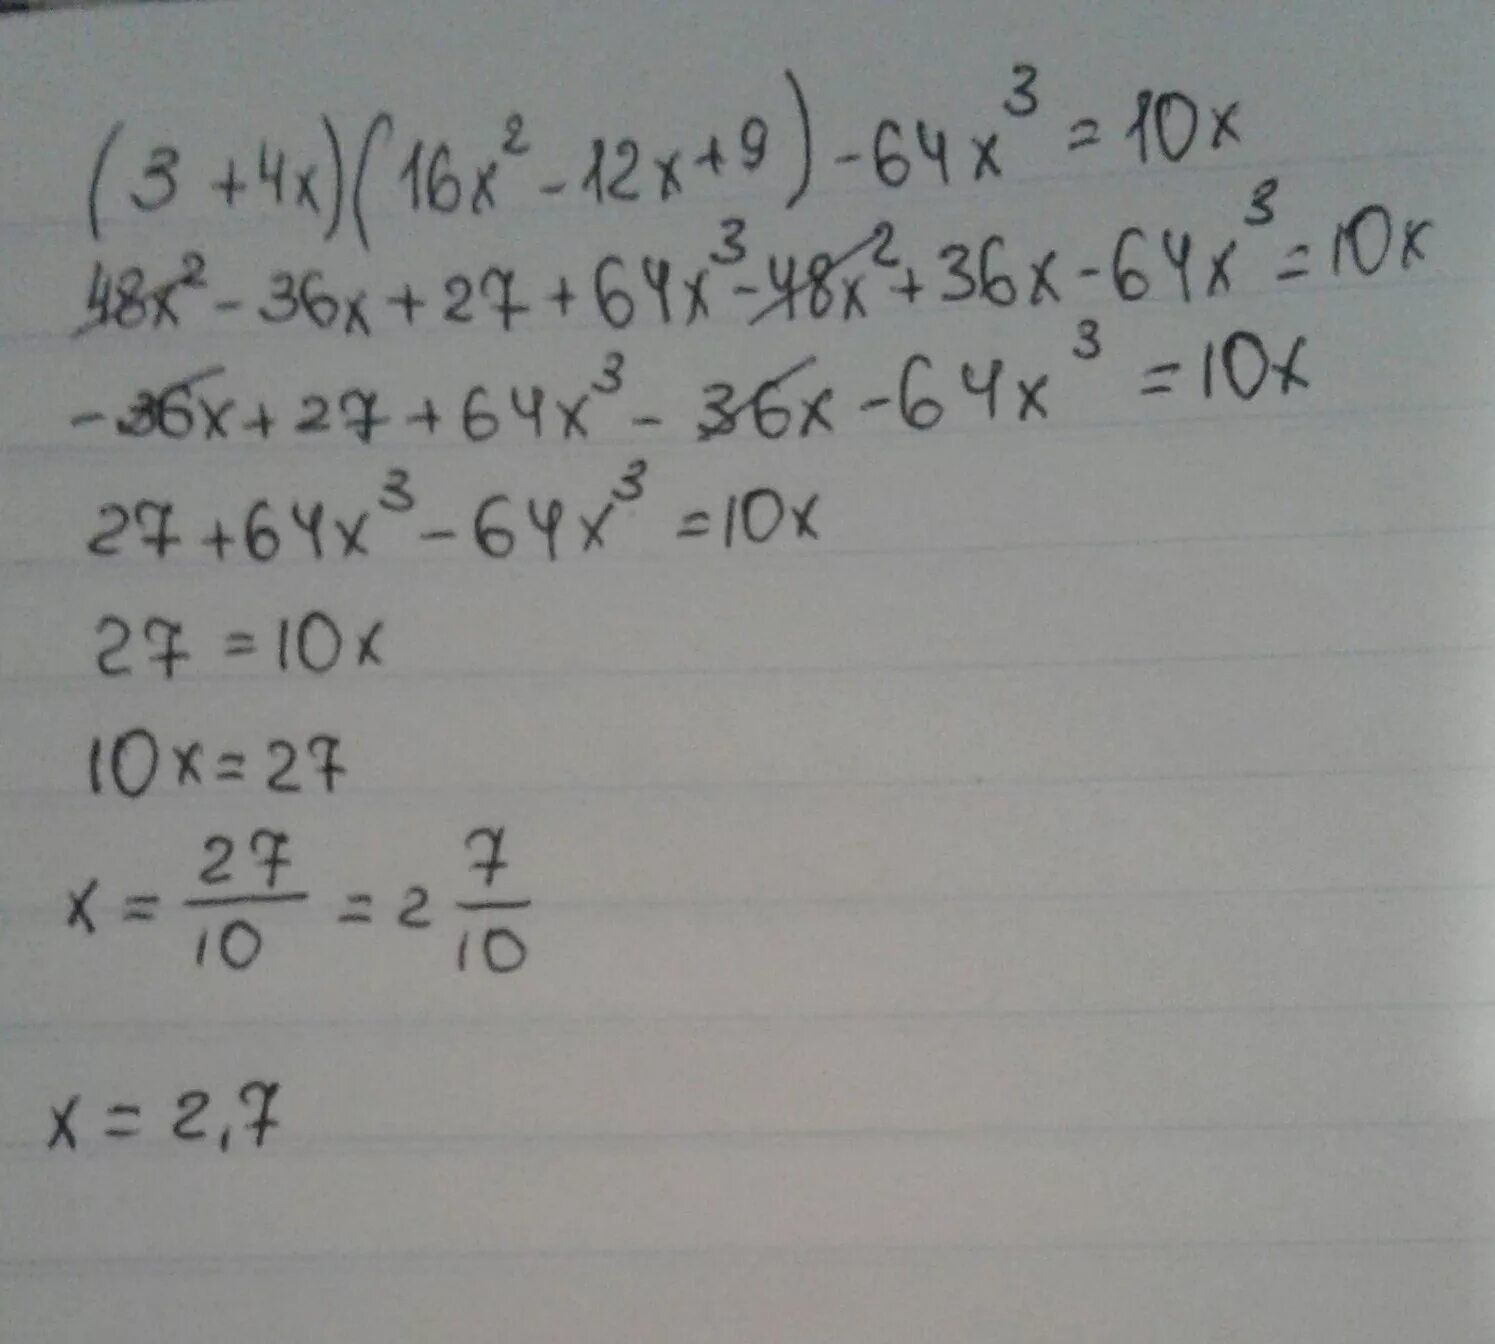 (3 + 4x)(16x² - 12x + 9) - 64x³ = 10x
48x² - 36x + 27 + 64x³ - 48x² + 36x - 64x³ = 10x
- 36x + 27 + 64x³ - 36x - 64x³ = 10x
27 + 64x³ - 64x³ = 10x
27 = 10x
10x = 27
x = 27/10 = 2 7/10
x = 2,7